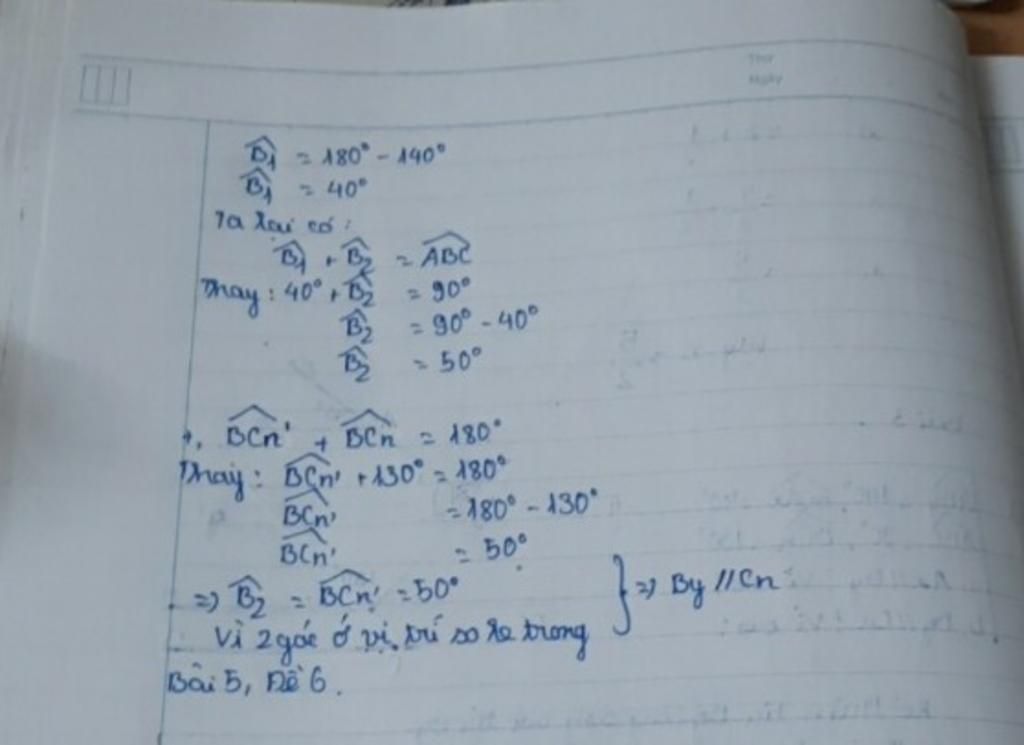 Thứ
Ngày
B̂₁ = 180° - 140°
B̂₁ = 40°
Ta lại có:
B̂₁ + B̂₂ = ABC
Thay: 40° + B̂₂ = 90°
B̂₂ = 90° - 40°
B̂₂ = 50°
+, BCn' + BCn = 180°
Thay: BCn' + 130° = 180°
BCn' = 180° - 130°
BCn' = 50°
=> B̂₂ = BCn' = 50°
Vì 2 góc ở vị trí so le trong } => By // Cn
Bài 5, Đề 6.